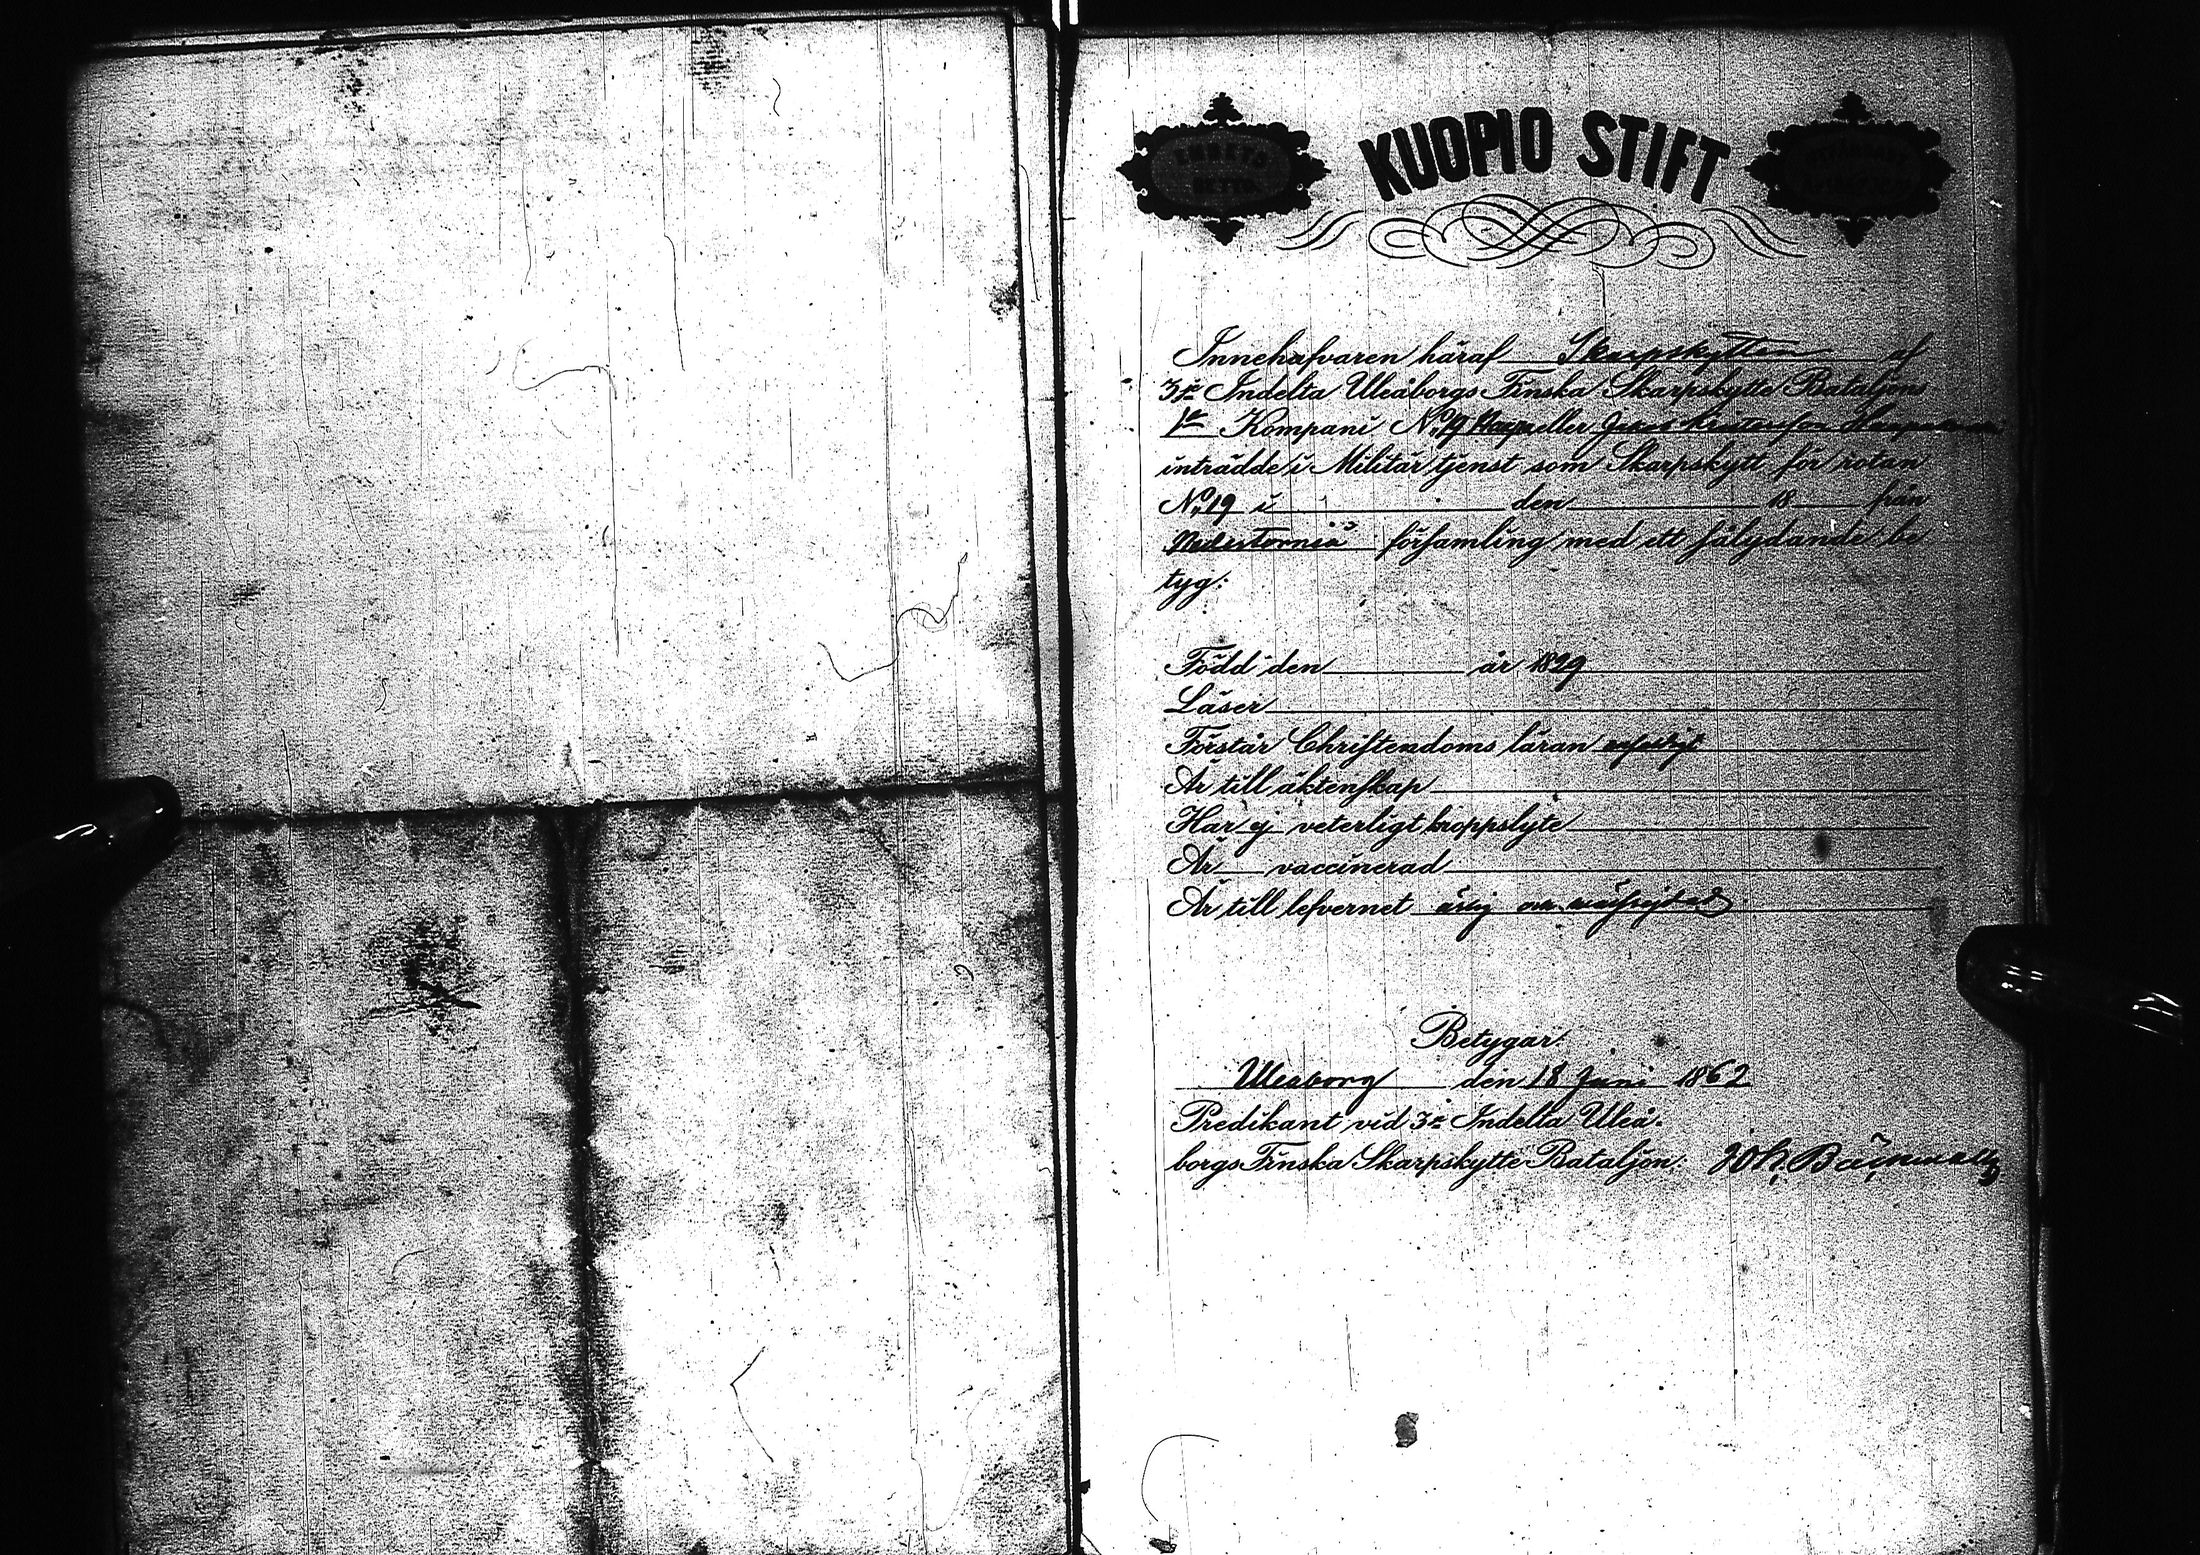 EMBETS KUOPIO STIFT
BETYG
Innehafvaren häraf Skarpskytten af
3je Indelta Uleåborgs Finska Skarpskytte Bataljons
1a Kompani No 19 eller
inträdde i Militär tjenst som Skarpskytt för rotan
No 19 i den 18 från
Nedertorneå församling med ett sålydande be
tyg:
Född den år 1829
Läser
Förstår Christendoms läran
Är till äktenskap
Har ej veterligt kroppslyte
Är vaccinerad
Är till lefvernet
Betygar:
Uleåborg den 18 Juni 1862
Predikant vid 3je Indelta Uleå-
borgs Finska Skarpskytte Bataljon: Joh.